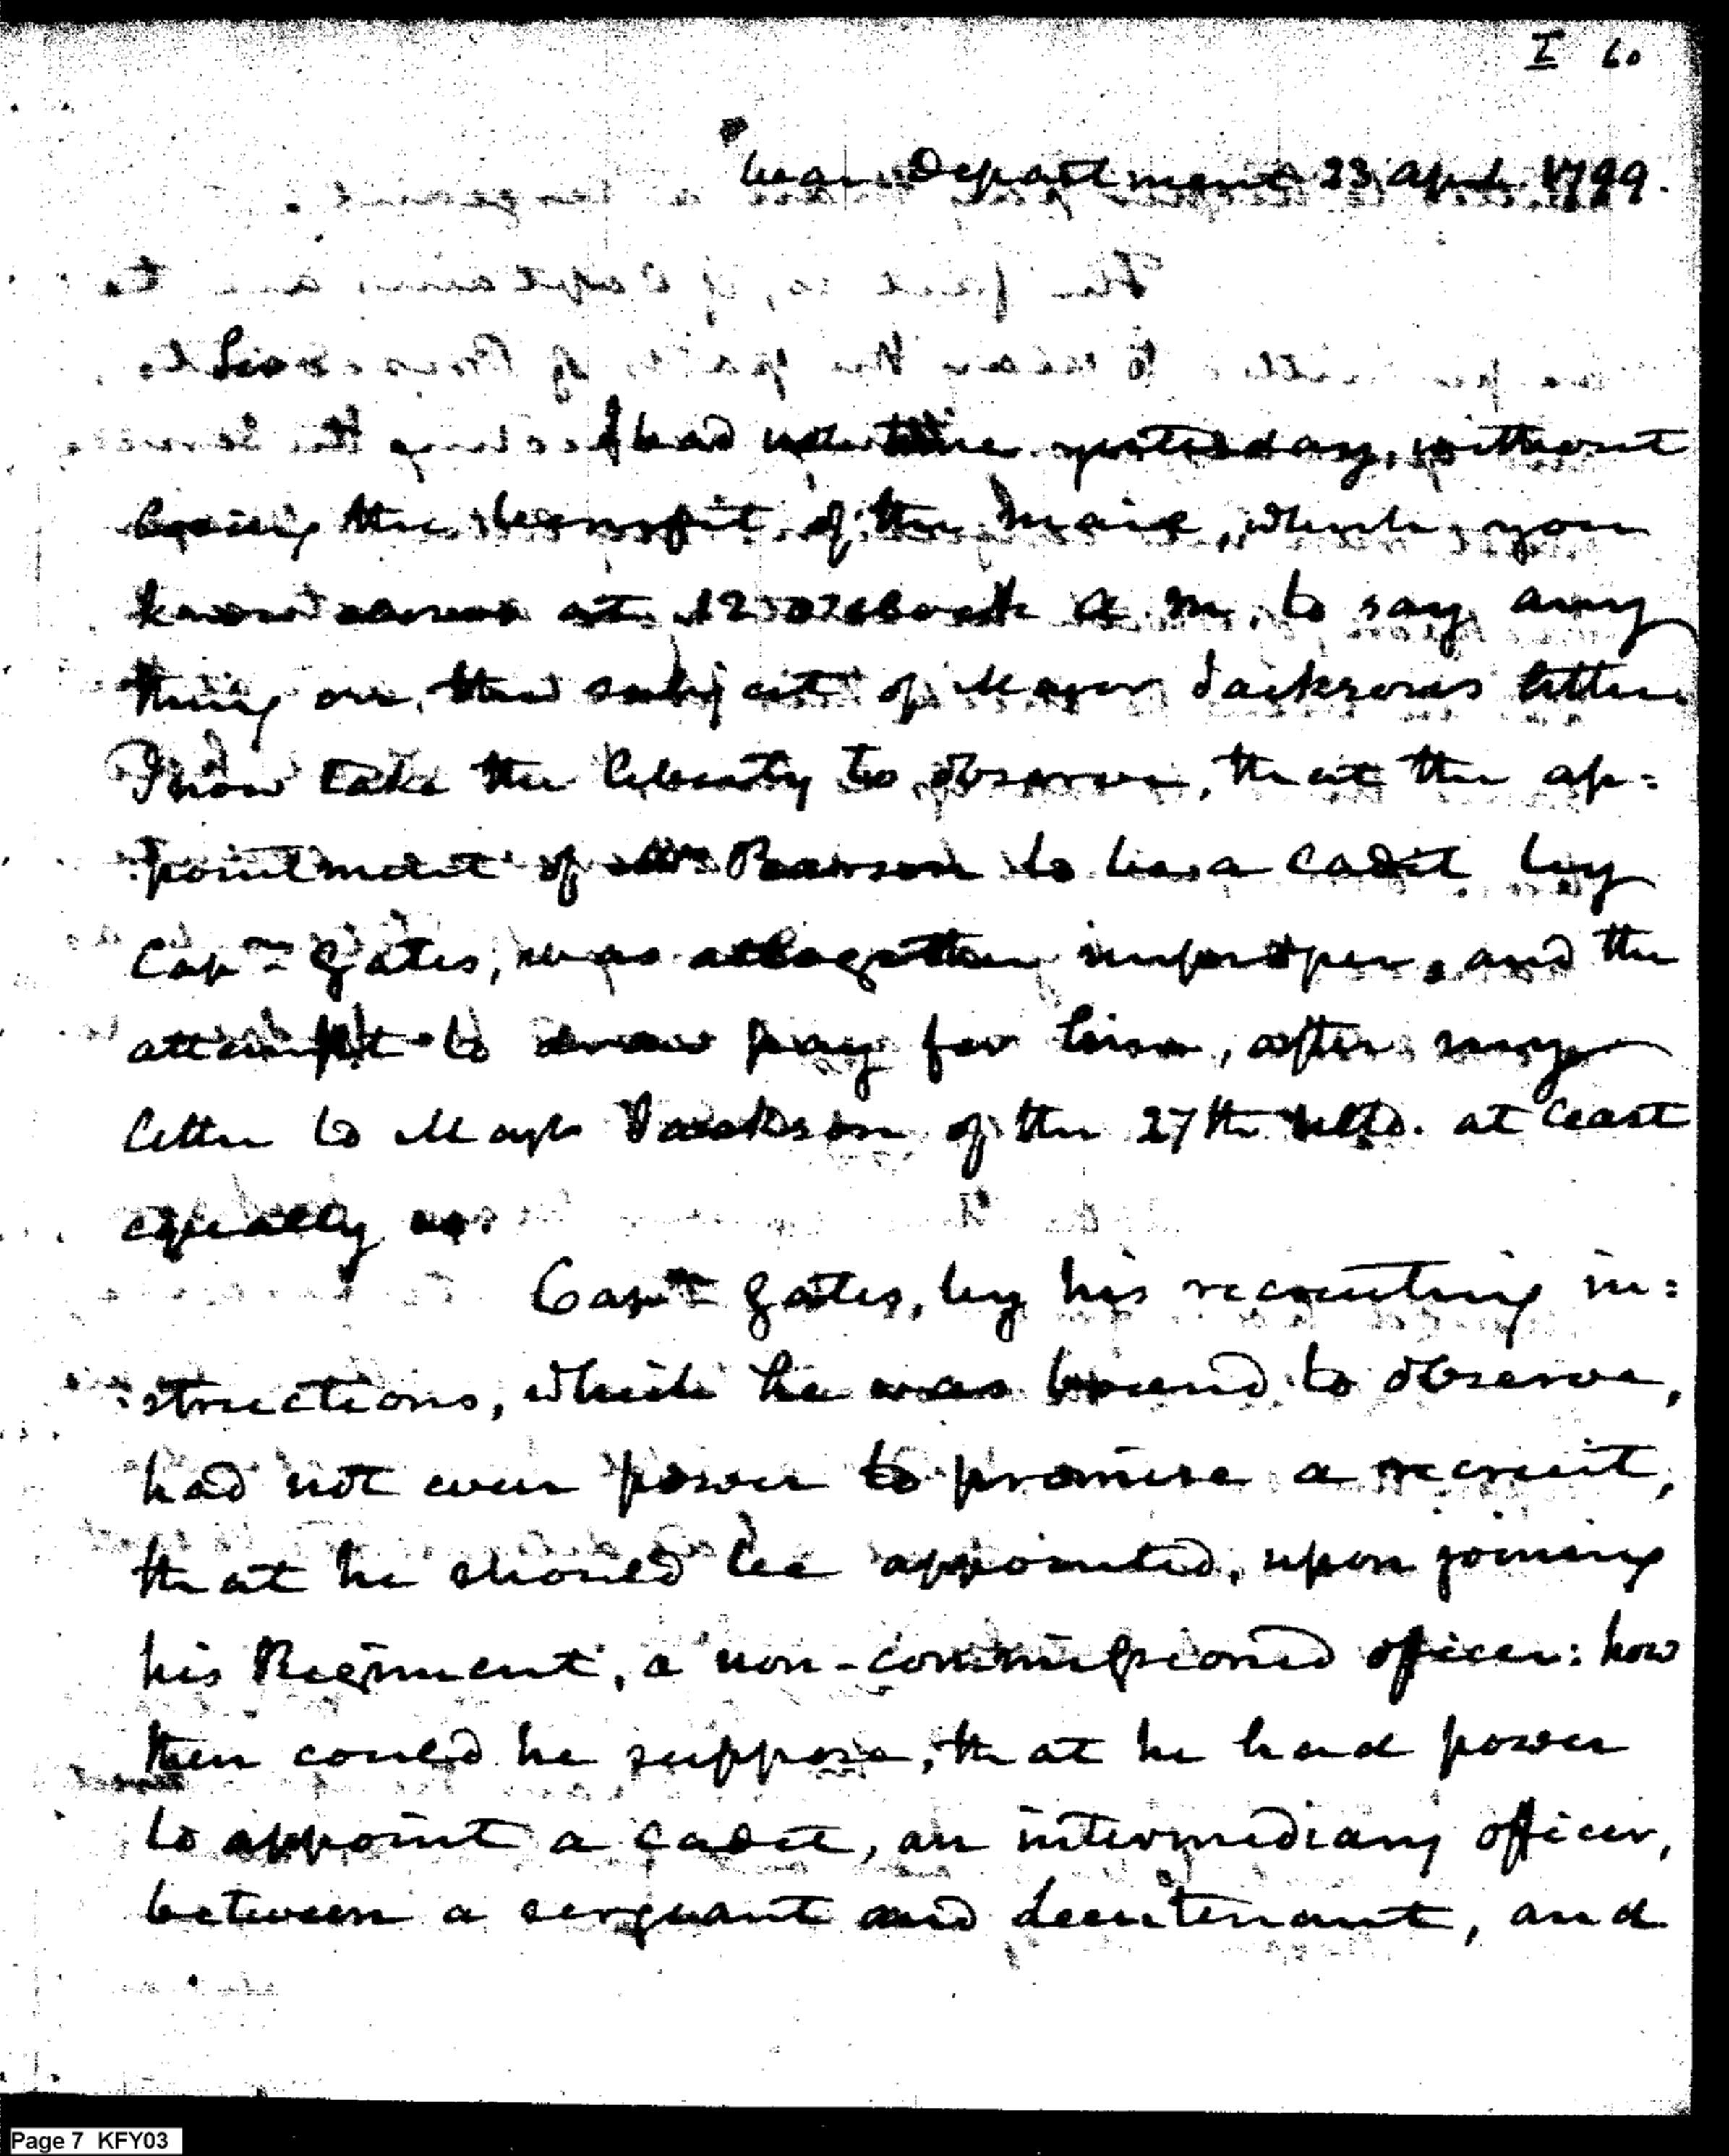 I 60
War Department 23 April 1799.
Sir
I had not time yesterday, without
losing the benefit of the mail, which you
know closes at 12 o'clock A. M. to say any
thing on the subject of Major Jacksons letter.
I now take the liberty to observe, that the ap=
=pointment of Mr Pearson to be a Cadet by
Capn Gates, was altogether improper, and the
attempt to draw pay for him, after my
letter to Major Jackson of the 27th ulto. at least
equally so.
Capn Gates, by his recruiting in=
=structions, which he was bound to observe,
had not even power to promise a recruit,
that he should be appointed, upon joining
his Regiment, a non-commissioned officer: how
then could he suppose, that he had power
to appoint a cadet, an intermediary officer,
between a serjeant and lieutenant, and
Page 7 KFY03